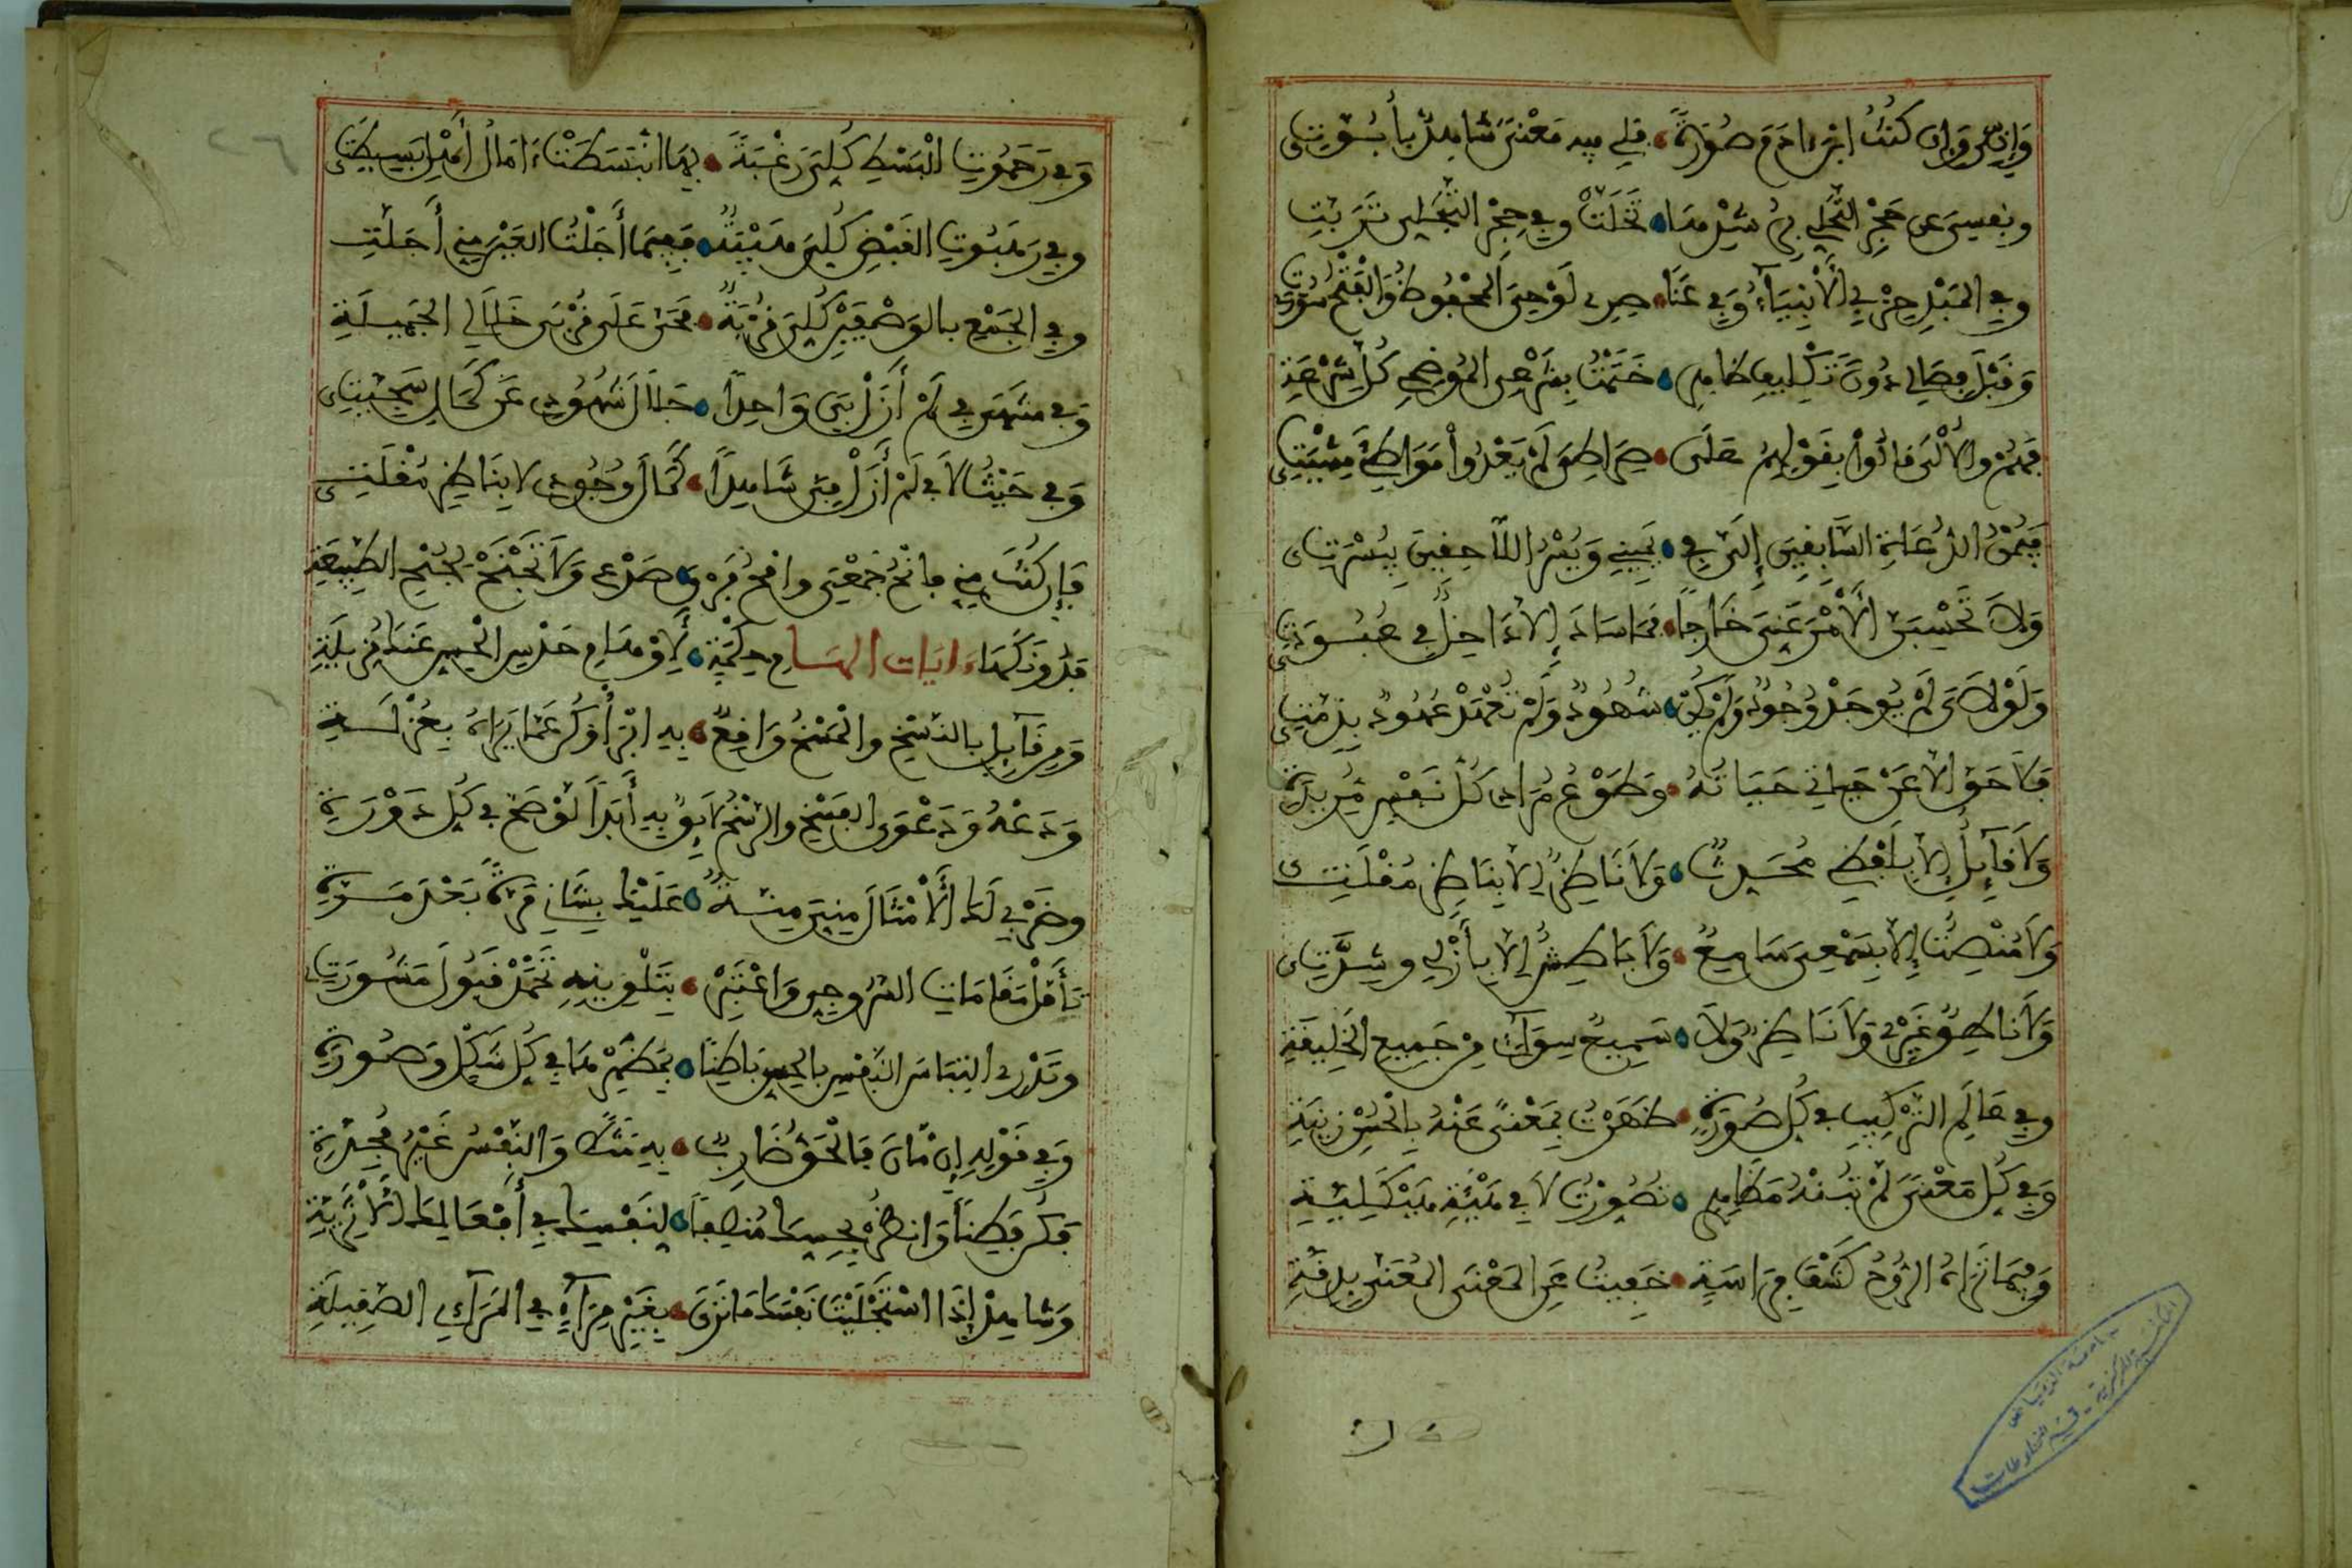 وَإِنِّي وَإِن كُنْتُ ابْنَ ءَادَمَ صُورَةً فَلِي فِيهِ مَعْنًى شَاهِدٌ بِأُبُوَّتِي
وَنَفْسِي عَن حَجْرِ التَّحَلِّي بِرُشْدِهَا تَخَلَّتْ وَفِي حِجْرِ التَّجَلِّي تَرَبَّتِ
وَفِي المَهْدِ حِزْبِي الأَنْبِيَاءُ وَفِي عَنَا صِرِي لَوْحِيَ المَحْفُوظُ وَالْفَتْحُ سُورَتِي
وَقَبْلَ فِصَالِي دُونَ تَكْلِيفِ ظَاهِرِي خَتَمْتُ بِشَرْعِي المُوضِحِي كُلَّ شِرْعَةِ
فَهُمْ وَالأُلَى قَالُوا بِقَوْلِهِمُ عَلَى صِرَاطِي لَمْ يَعْدُوا مَوَاطِئَ مِشْيَتِي
فَيُمْنُ الدُّعَاةِ السَّابِقِينَ إِلَيَّ فِي يَمِينِي وَيُسْرُ اللَّاحِقِينَ بِيُسْرَتِي
وَلَا تَحْسِبَنَّ الأَمْرَ عَنِّيَ خَارِجًا فَمَا سَادَ إِلَّا دَاخِلٌ فِي عُبُودَتِي
وَلَوْلَايَ لَمْ يُوجَدْ وُجُودٌ وَلَمْ يَكُنْ شُهُودٌ وَلَمْ تُعْهَدْ عُهُودٌ بِذِمَّتِي
فَلَا حَيَّ إِلَّا عَنْ حَيَاتِي حَيَاتُهُ وَطَوْعُ مُرَادِي كُلُّ نَفْسٍ مُرِيدَةِ
وَلَا قَائِلٌ إِلَّا بِلَفْظِي مُحَدِّثٌ وَلَا نَاظِرٌ إِلَّا بِنَاظِرِ مُقْلَتِي
وَلَا مُنْصِتٌ إِلَّا بِسَمْعِيَ سَامِعٌ وَلَا بَاطِشٌ إِلَّا بِأَزْلِي وَشِدَّتِي
وَلَا نَاطِقٌ غَيْرِي وَلَا نَاظِرٌ وَلَا سَمِيعٌ سِوَائِي مِنْ جَمِيعِ الخَلِيقَةِ
وَفِي عَالَمِ التَّرْكِيبِ فِي كُلِّ صُورَةٍ ظَهَرْتُ بِمَعْنًى عَنْهُ بِالْحُسْنِ زِينَةِ
وَفِي كُلِّ مَعْنًى لَمْ تُبِنْهُ مَظَاهِرِي تَصَوَّرْتُ لَا فِي هَيْئَةٍ هَيْكَلِيَّةِ
وَفِيمَا تَرَاهُ الرُّوحُ كَشْفَ فِرَاسَةٍ خَفِيتُ عَنِ المَعْنَى المُعَنَّى بِدِقَّةِ
جامعة الرياض
المكتبة المركزية - قسم المخطوطات
وَفِي رَحَمُوتِ الْبَسْطِ كُلِّيَ رَغْبَةٌ بِهَا انْبَسَطَتْ ءَامَالُ أَهْلِ بَسِيطَتِي
وَفِي رَهَبُوتِ القَبْضِ كُلِّيَ هَيْبَةٌ فَفِيمَا أَجَلْتُ العَيْنَ مِنِّي أَجَلَّتِ
وَفِي الجَمْعِ بِالوَصْفَيْنِ كُلِّيَ قُرْبَةٌ فَحَيَّ عَلَى قُرْبَى خِلَالِي الجَمِيلَةِ
وَفِي مُنْتَهَى فِي لَمْ أَزَلْ بِيَ وَاجِدًا جَلَالَ شُهُودِي عَنْ كَمَالِ سَجِيَّتِي
وَفِي حَيْثُ لَا فِي لَمْ أَزَلْ فِيَّ شَاهِدًا كَمَالَ وُجُودِي لَا بِنَاظِرِ مُقْلَتِي
فَإِن كُنْتَ مِنِّي فَانْحُ جَمْعِي وَامْحُ فَرْ قَ صَدْعِي وَلَا تَجْنَحْ لِجُنْحِ الطَّبِيعَةِ
فَدُونَكَهَا ءَايَاتِ إلهَامِ حِكْمَةٍ لِأَوْهَامِ حَدْسِ الحِسِّ عَنْكَ مُزِيلَةِ
وَمِن قَائِلٍ بِالنَّسْخِ وَالْمَسْخُ وَاقِعٌ بِهِ ابْرَأْ وَكُن عَمَّا يَرَاهُ بِعُزْلَةِ
وَدَعْهُ وَدَعْوَى الفَسْخِ وَالرَّسْخُ لَائِقٌ بِهِ أَبَدًا لَوْ صَحَّ فِي كُلِّ دَوْرَةِ
وَضَرْبِي لَكَ الأَمْثَالَ مِنِّيَ مِنَّةٌ عَلَيْكَ بِشَانِي مَرَّةً بَعْدَ مَرَّةِ
تَأَمَّلْ مَقَامَاتِ السَّرُوجِيِّ وَاعْتَبِرْ بِتَلْوِينِهِ تَحْمَدْ قَبُولَ مَشُورَتِي
وَتَدْرِي التِبَاسَ النَّفْسِ بِالحِسِّ بَاطِنًا بِمَظْهَرِهَا فِي كُلِّ شَكْلٍ وَصُورَةِ
وَفِي قَوْلِهِ إِنْ مَانَ فَالْحَقُّ ضَارِبٌ بِهِ مَثَلًا وَالنَّفْسُ غَيْرُ مُجِدَّةِ
فَكُن فَطِنًا وَانظُرْ بِحِسِّكَ مُنْصِفًا لِنَفْسِكَ فِي أَفْعَالِكَ الأَثَرِيَّةِ
وَشَاهِدْ إِذَا اسْتَجْلَيْتَ نَفْسَكَ مَا تَرَى بِغَيْرِ مِرَآءٍ فِي المَرَائِي الصَّقِيلَةِ